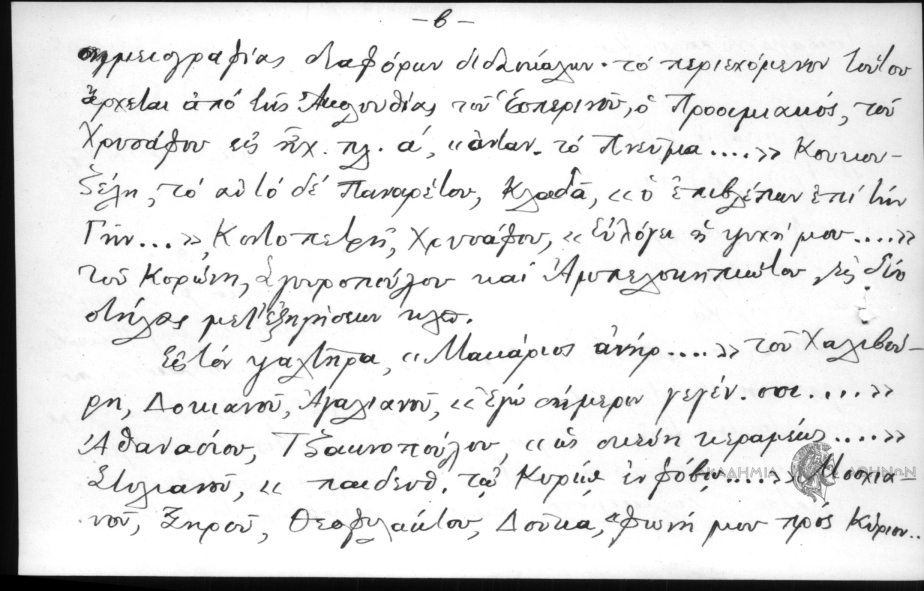 – β –
σημειογραφίας διαφόρων διδασκάλων· τὸ περιεχόμενον τούτου
ἄρχεται ἀπό τῆς Ἀκολουθίας τοῦ Ἑσπερινοῦ, ὁ Προοιμιακός, τοῦ
Χρυσάφου εἰς ἦχ. πλ. ά, «ἀνταν. τό Πνεῦμα....» Κουκου-
ζέλη, τό αὐτό δέ Παναρέτου, Κλαδᾶ, «ὁ ἐπιβλέπων ἐπί τήν
Γῆν...», Κοντοπετρῆ, Χρυσάφου, «Εὐλόγει ἡ ψυχή μου....»
τοῦ Κορώνη, Ἀργυροπούλου καί Ἀμπελοκηπιώτου εἰς δύο
στήλας μετ' ἐξηγήσεων κλπ.
Εἰς τόν ψαλτῆρα, «Μακάριος ἀνήρ....» τοῦ Χαλιβού-
ρη, Δοκιανοῦ, Ἀγαλιανοῦ, «Ἐγώ σήμερον γεγέν. σοι....»
Ἀθανασίου, Τζακνοπούλου, «ὡς σκεύη κεραμέως....»
Στυλιανοῦ, « παιδευθ. τῷ Κυρίῳ ἐν φόβῳ....» Μοσχια-
νοῦ, Ξηροῦ, Θεοφυλάκτου, Δούκα, «φωνῇ μου πρός Κύριον..
ΑΚΑΔΗΜΙΑ ΑΘΗΝΩΝ